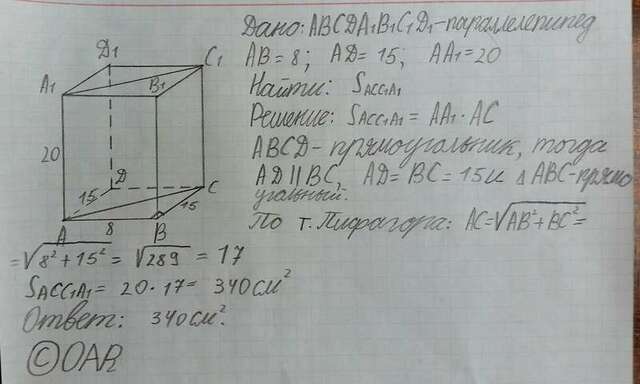 Дано: ABCDA₁B₁C₁D₁-параллелепипед
AB = 8; AD = 15; AA₁ = 20
Найти: SACC₁A₁
Решение: SACC₁A₁ = AA₁ · AC
ABCD - прямоугольник, тогда
AD || BC, AD = BC = 15 и △ ABC-прямо
угольный.
По т. Пифагора: AC = √AB² + BC² =
= √8² + 15² = √289 = 17
SACC₁A₁ = 20 · 17 = 340 см²
Ответ: 340 см².
D₁
C₁
A₁
B₁
20
D
C
15
15
A
8
B